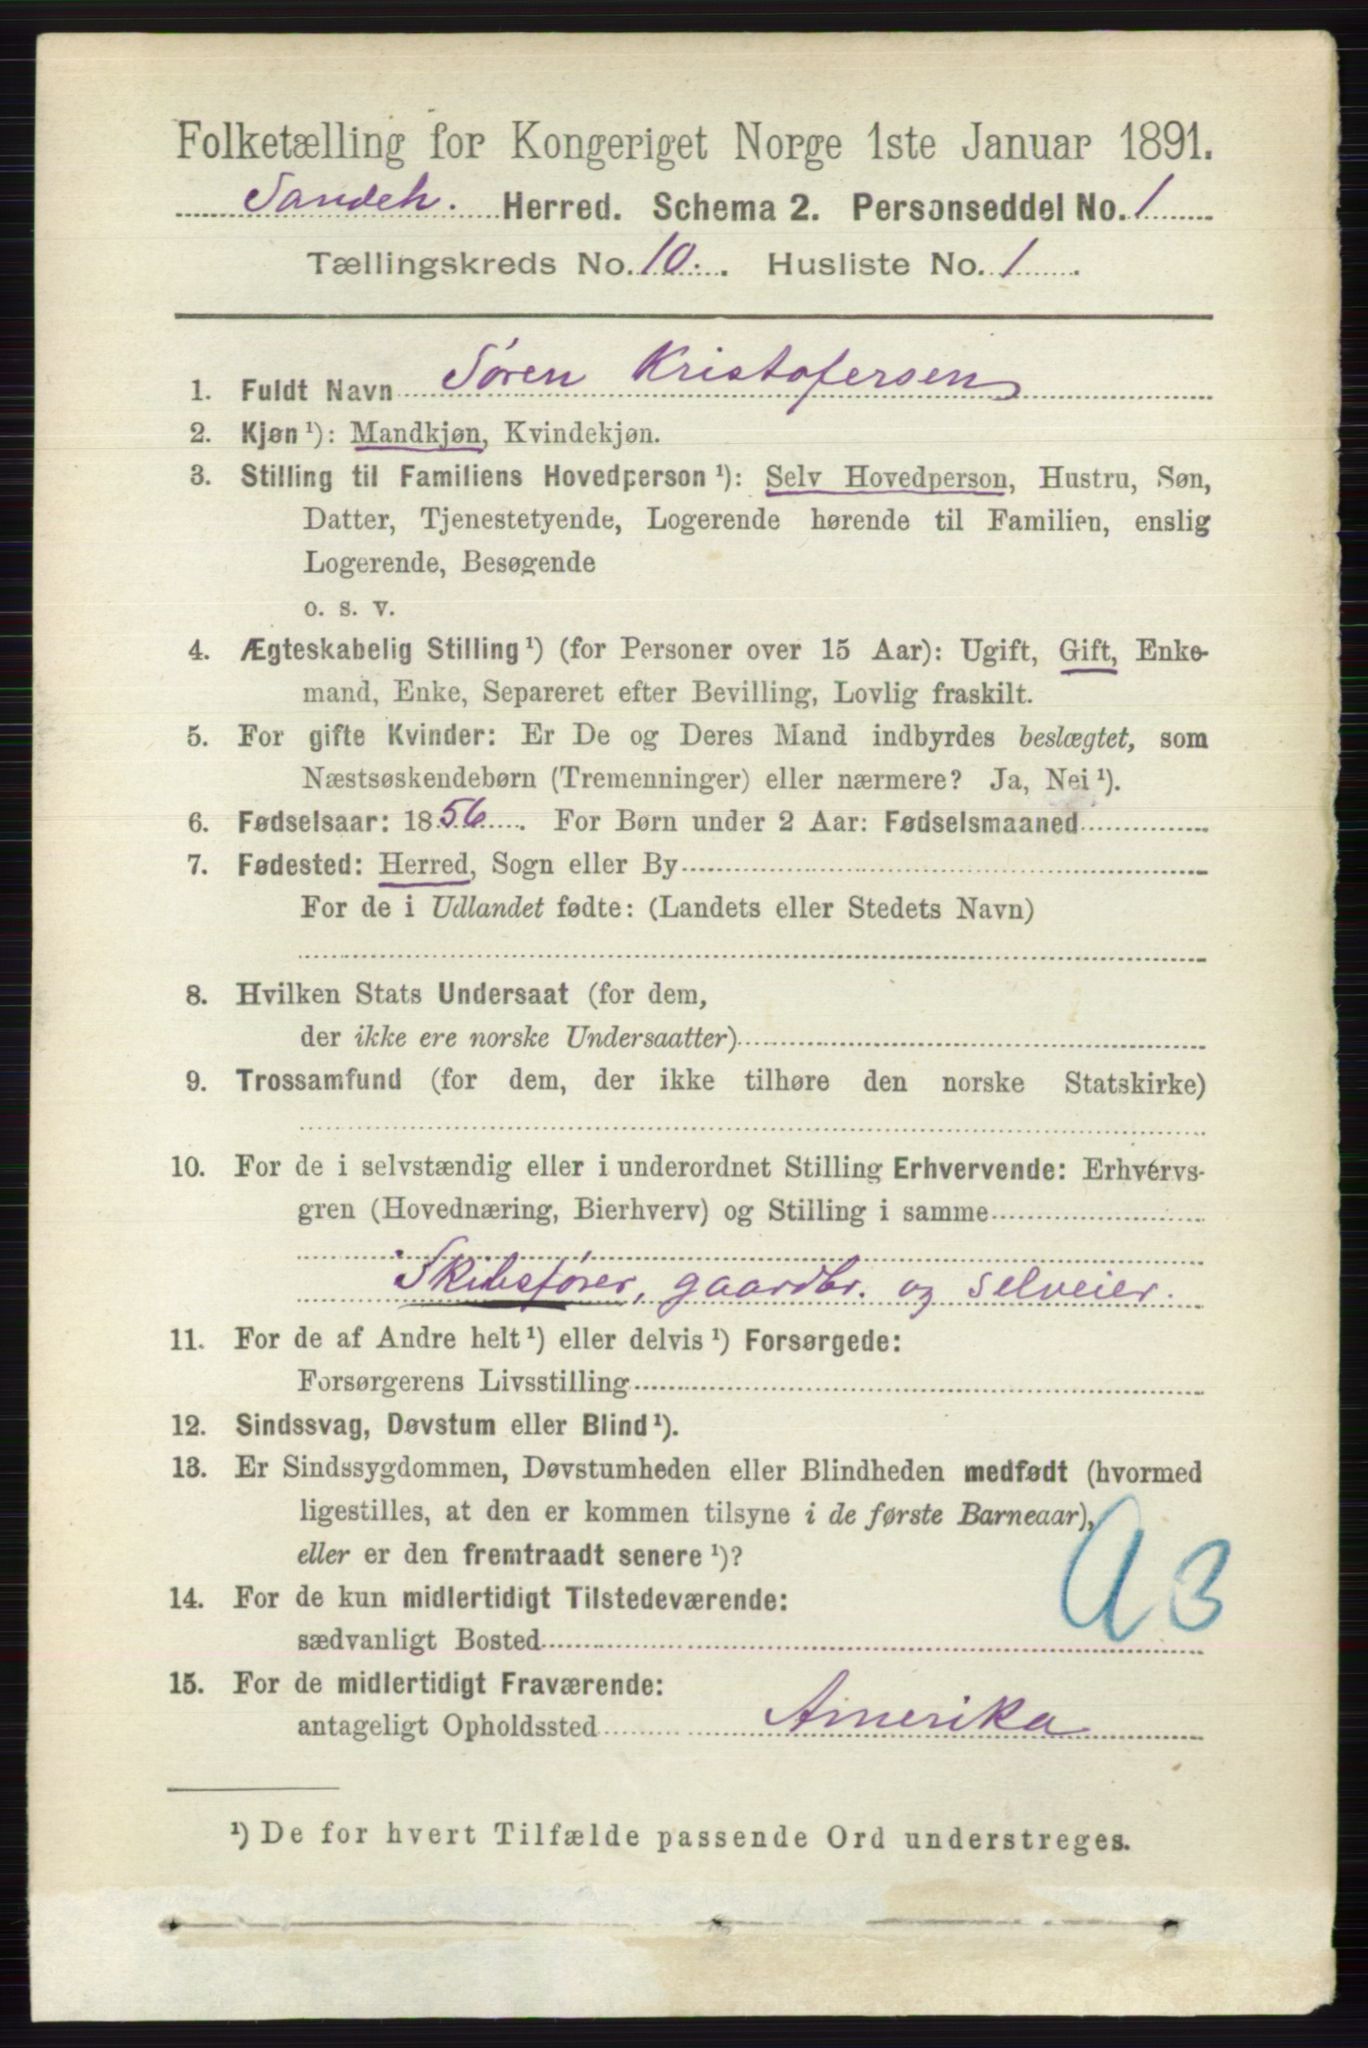 Folketælling for Kongeriget Norge 1ste Januar 1891.
Sandeh. Herred. Schema 2. Personseddel No. 1
Tællingskreds No. 10. Husliste No. 1
1. Fuldt Navn Søren Kristofersen
2. Kjøn ¹): Mandkjøn, Kvindekjøn.
3. Stilling til Familiens Hovedperson ¹): Selv Hovedperson, Hustru, Søn,
Datter, Tjenestetyende, Logerende hørende til Familien, enslig
Logerende, Besøgende
o. s. v.
4. Ægteskabelig Stilling ¹) (for Personer over 15 Aar): Ugift, Gift, Enke-
mand, Enke, Separeret efter Bevilling, Lovlig fraskilt.
5. For gifte Kvinder: Er De og Deres Mand indbyrdes beslægtet, som
Næstsøskendebørn (Tremenninger) eller nærmere? Ja, Nei ¹).
6. Fødselsaar: 1856. For Børn under 2 Aar: Fødselsmaaned
7. Fødested: Herred, Sogn eller By
For de i Udlandet fødte: (Landets eller Stedets Navn)
8. Hvilken Stats Undersaat (for dem,
der ikke ere norske Undersaatter)
9. Trossamfund (for dem, der ikke tilhøre den norske Statskirke)
10. For de i selvstændig eller i underordnet Stilling Erhvervende: Erhvervs-
gren (Hovednæring, Bierhverv) og Stilling i samme
Skibsfører, gaardbr. og selveier.
11. For de af Andre helt ¹) eller delvis ¹) Forsørgede:
Forsørgerens Livsstilling
12. Sindssvag, Døvstum eller Blind ¹).
13. Er Sindssygdommen, Døvstumheden eller Blindheden medfødt (hvormed
ligestilles, at den er kommen tilsyne i de første Barneaar),
eller er den fremtraadt senere ¹)?
A3
14. For de kun midlertidigt Tilstedeværende:
sædvanligt Bosted
15. For de midlertidigt Fraværende:
antageligt Opholdssted Amerika
¹) De for hvert Tilfælde passende Ord understreges.